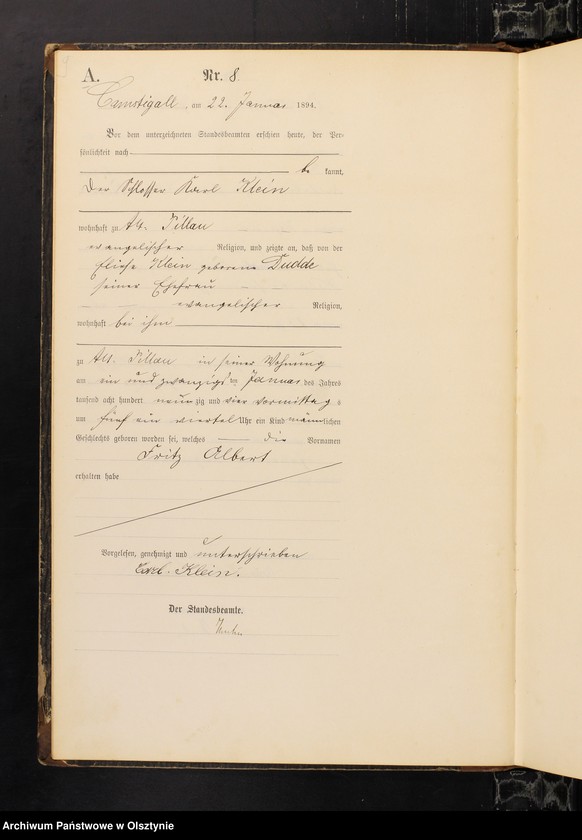 A. Nr. 8.
Camstigall, am 22. Januar 1894.
Vor dem unterzeichneten Standesbeamten erschien heute, der Per-
sönlichkeit nach
be kannt,
Der Schlosser Karl Klein
wohnhaft zu Alt. Pillau
evangelischer Religion, und zeigte an, daß von der
Eliese Klein geborene Dudde
seiner Ehefrau
evangelischer Religion,
wohnhaft bei ihm
zu Alt. Pillau in seiner Wohnung
am ein und zwanzigsten Januar des Jahres
tausend acht hundert neun zig und vier vormittags
um fünf ein viertel Uhr ein Kind männlichen
Geschlechts geboren worden sei, welches die Vornamen
Fritz Albert
erhalten habe
Vorgelesen, genehmigt und unterschrieben
Carl. Klein.
Der Standesbeamte.
Archiwum Państwowe w Olsztynie